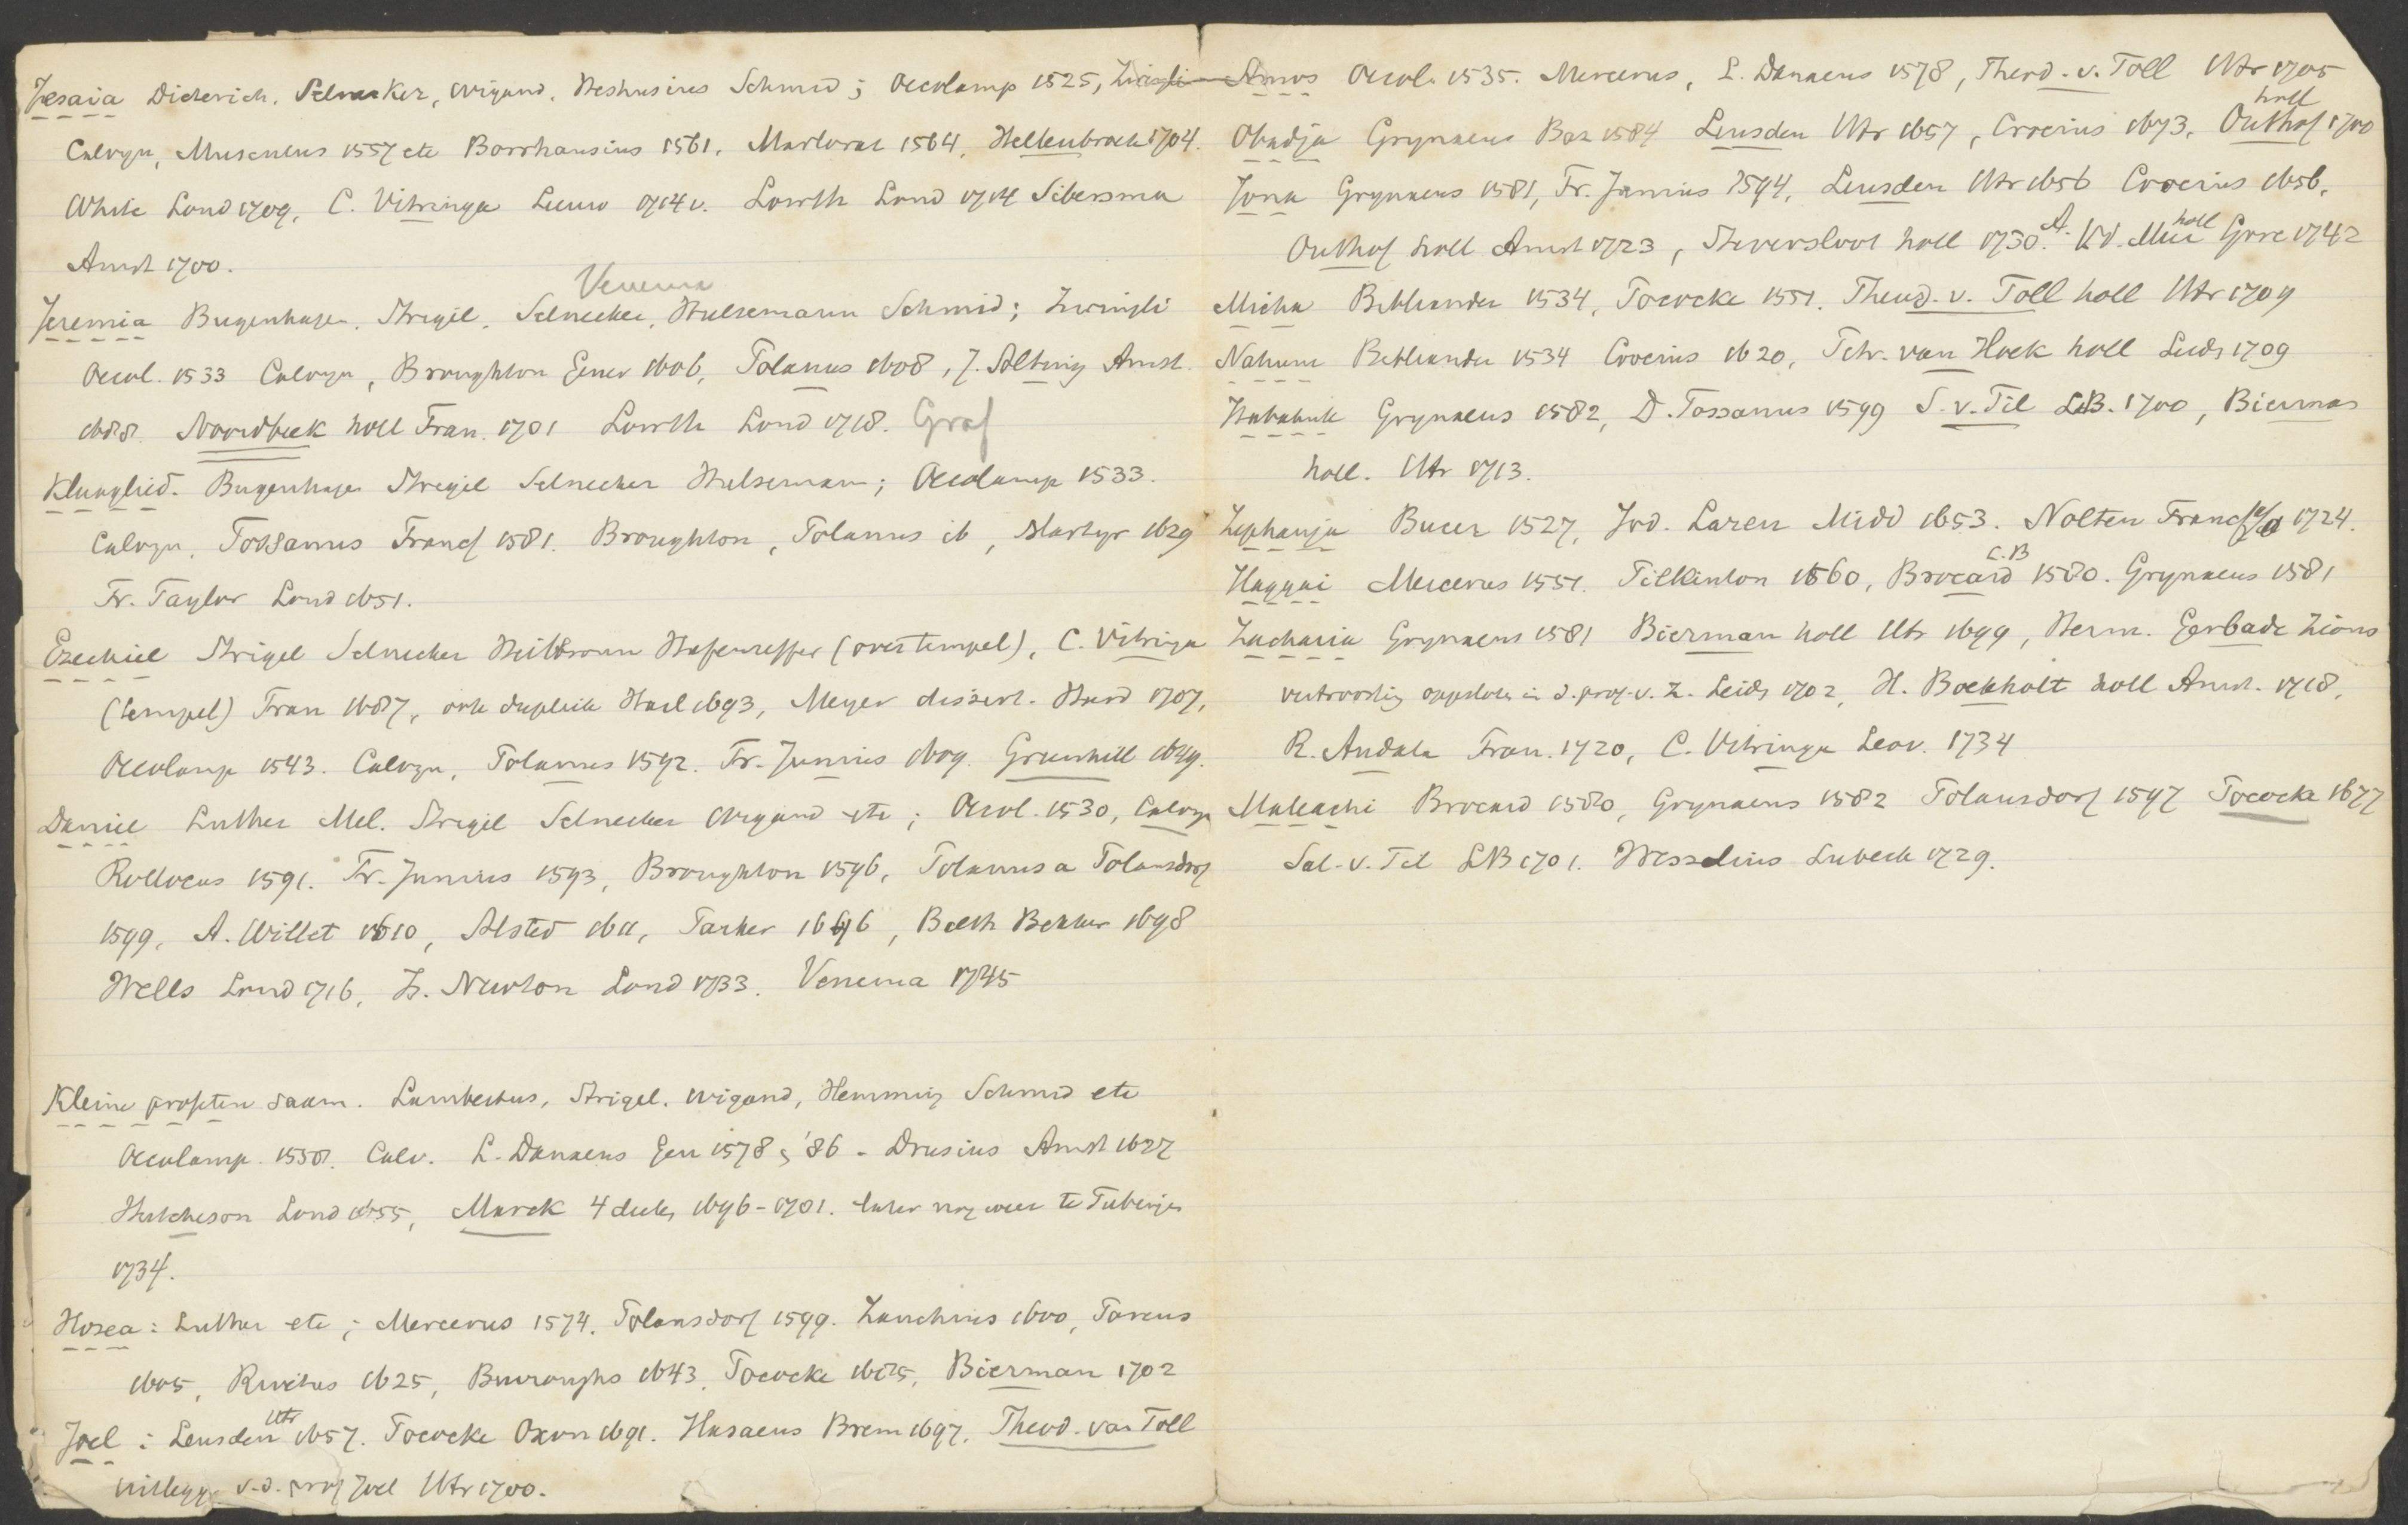 Jesaia Dieterich. Selnecker, Wigand, Heshusius Schmid; Oecolamp 1525, Zwingli
Calvyn, Musculus 1557 etc Borrhausius 1561. Marlorat 1564, Hellenbroek 1704.
White Lond 1709, C. Vitringa Leeuw 1714 v. Lowth Lond 1714 Sibersma
Amst 1700.
Venema
Jeremia Bugenhagen. Strigel. Selnecker, Hulsemann Schmid; Zwingli
Oecol. 1533 Calvyn, Broughton Genev 1606, Polanus 1608, J. Alting Amst.
1688. Noordbeek holl Fran. 1701 Lowth Lond 1718. Graf
Klaaglied. Bugenhagen Strigel Selnecker Hulsemann; Oecolamp 1533.
Calvyn, Tossanus Francf 1581. Broughton, Polanus ib, Martyr 1629
Fr. Taylor Lond 1651.
Ezechiel Strigel Selnecker Heilbronn Hafenreffer (over tempel), C. Vitringa
(tempel) Fran 1687, ook dupliek Harl 1693, Meyer dissert. Hard 1707,
Oecolamp 1543. Calvyn, Polanus 1592. Fr. Junius 1609. Greenhill 1649.
Daniel Luther Mel. Strigel Selnecker Wigand etc; Oecol. 1530, Calvyn
Rollocus 1591. Fr. Junius 1593, Broughton 1596, Polanus a Polansdorf
1599, A. Willet 1610, Alsted 1611, Parker 1646, Balth Bekker 1698
Wells Lond 1716, Is. Newton Lond 1733. Venema 1745
Kleine profeten saam. Lambertus, Strigel. Wigand, Hemming Schmid etc
Oecolamp. 1558. Calv. L. Danaeus Gen 1578 & '86 - Drusius Amst 1627
Hutcheson Lond 1655, Marck 4 deelen 1696-1701. later nog weer te Tubingen
1734.
Hosea: Luther etc; Mercerus 1574. Polansdorf 1599. Zanchius 1600, Pareus
1605, Rivetus 1625, Burroughs 1643. Pococke 1685, Bierman 1702
Joel: Leusden Utr 1657. Pococke Oxon 1691. Hasaeus Brem 1697. Theod. van Toll
uitlegg. v.d. prof Joel Utr 1700.
Amos Oecol. 1535. Mercerus, L. Danaeus 1578, Theod. v. Toll Utr 1705
Obadja Grynaeus Bas 1584 Leusden Utr 1657, Crocius 1673, Outhof holl 1700
Jona Grynaeus 1581, Fr. Junius 1594, Leusden Utr 1656 Crocius 1656,
Outhof holl Amst 1723, Steversloot holl 1730. A. v.d. Muir holl Gore 1742
Micha Bibliander 1534, Pococke 1551. Theod. v. Toll holl Utr 1709
Nahum Bibliander 1534 Crocius 1620, Joh. van Hoek holl Leids 1709
Habakuk Grynaeus 1582, D. Tossanus 1599 S. v. Til L.B. 1700, Bierman
holl. Utr 1713.
Zephanja Bucer 1527, Jod. Laren Midd 1653. Nolten Francf a/d 1724.
Haggai Mercerus 1551. Pilkinton 1560, Brocard L.B 1580. Grynaeus 1581
Zacharia Grynaeus 1581 Bierman holl Utr 1699, Herm. Gerbade Zions
vertroosting opgesloten in d. prof. v. Z. Leids 1702, H. Boekholt holl Amst. 1718,
R. Andala Fran. 1720, C. Vitringa Leov. 1734
Maleachi Brocard 1580, Grynaeus 1582 Polansdorf 1597 Pococke 1677
Sal. v. Til LB 1701. Wesselius Lubeck 1729.